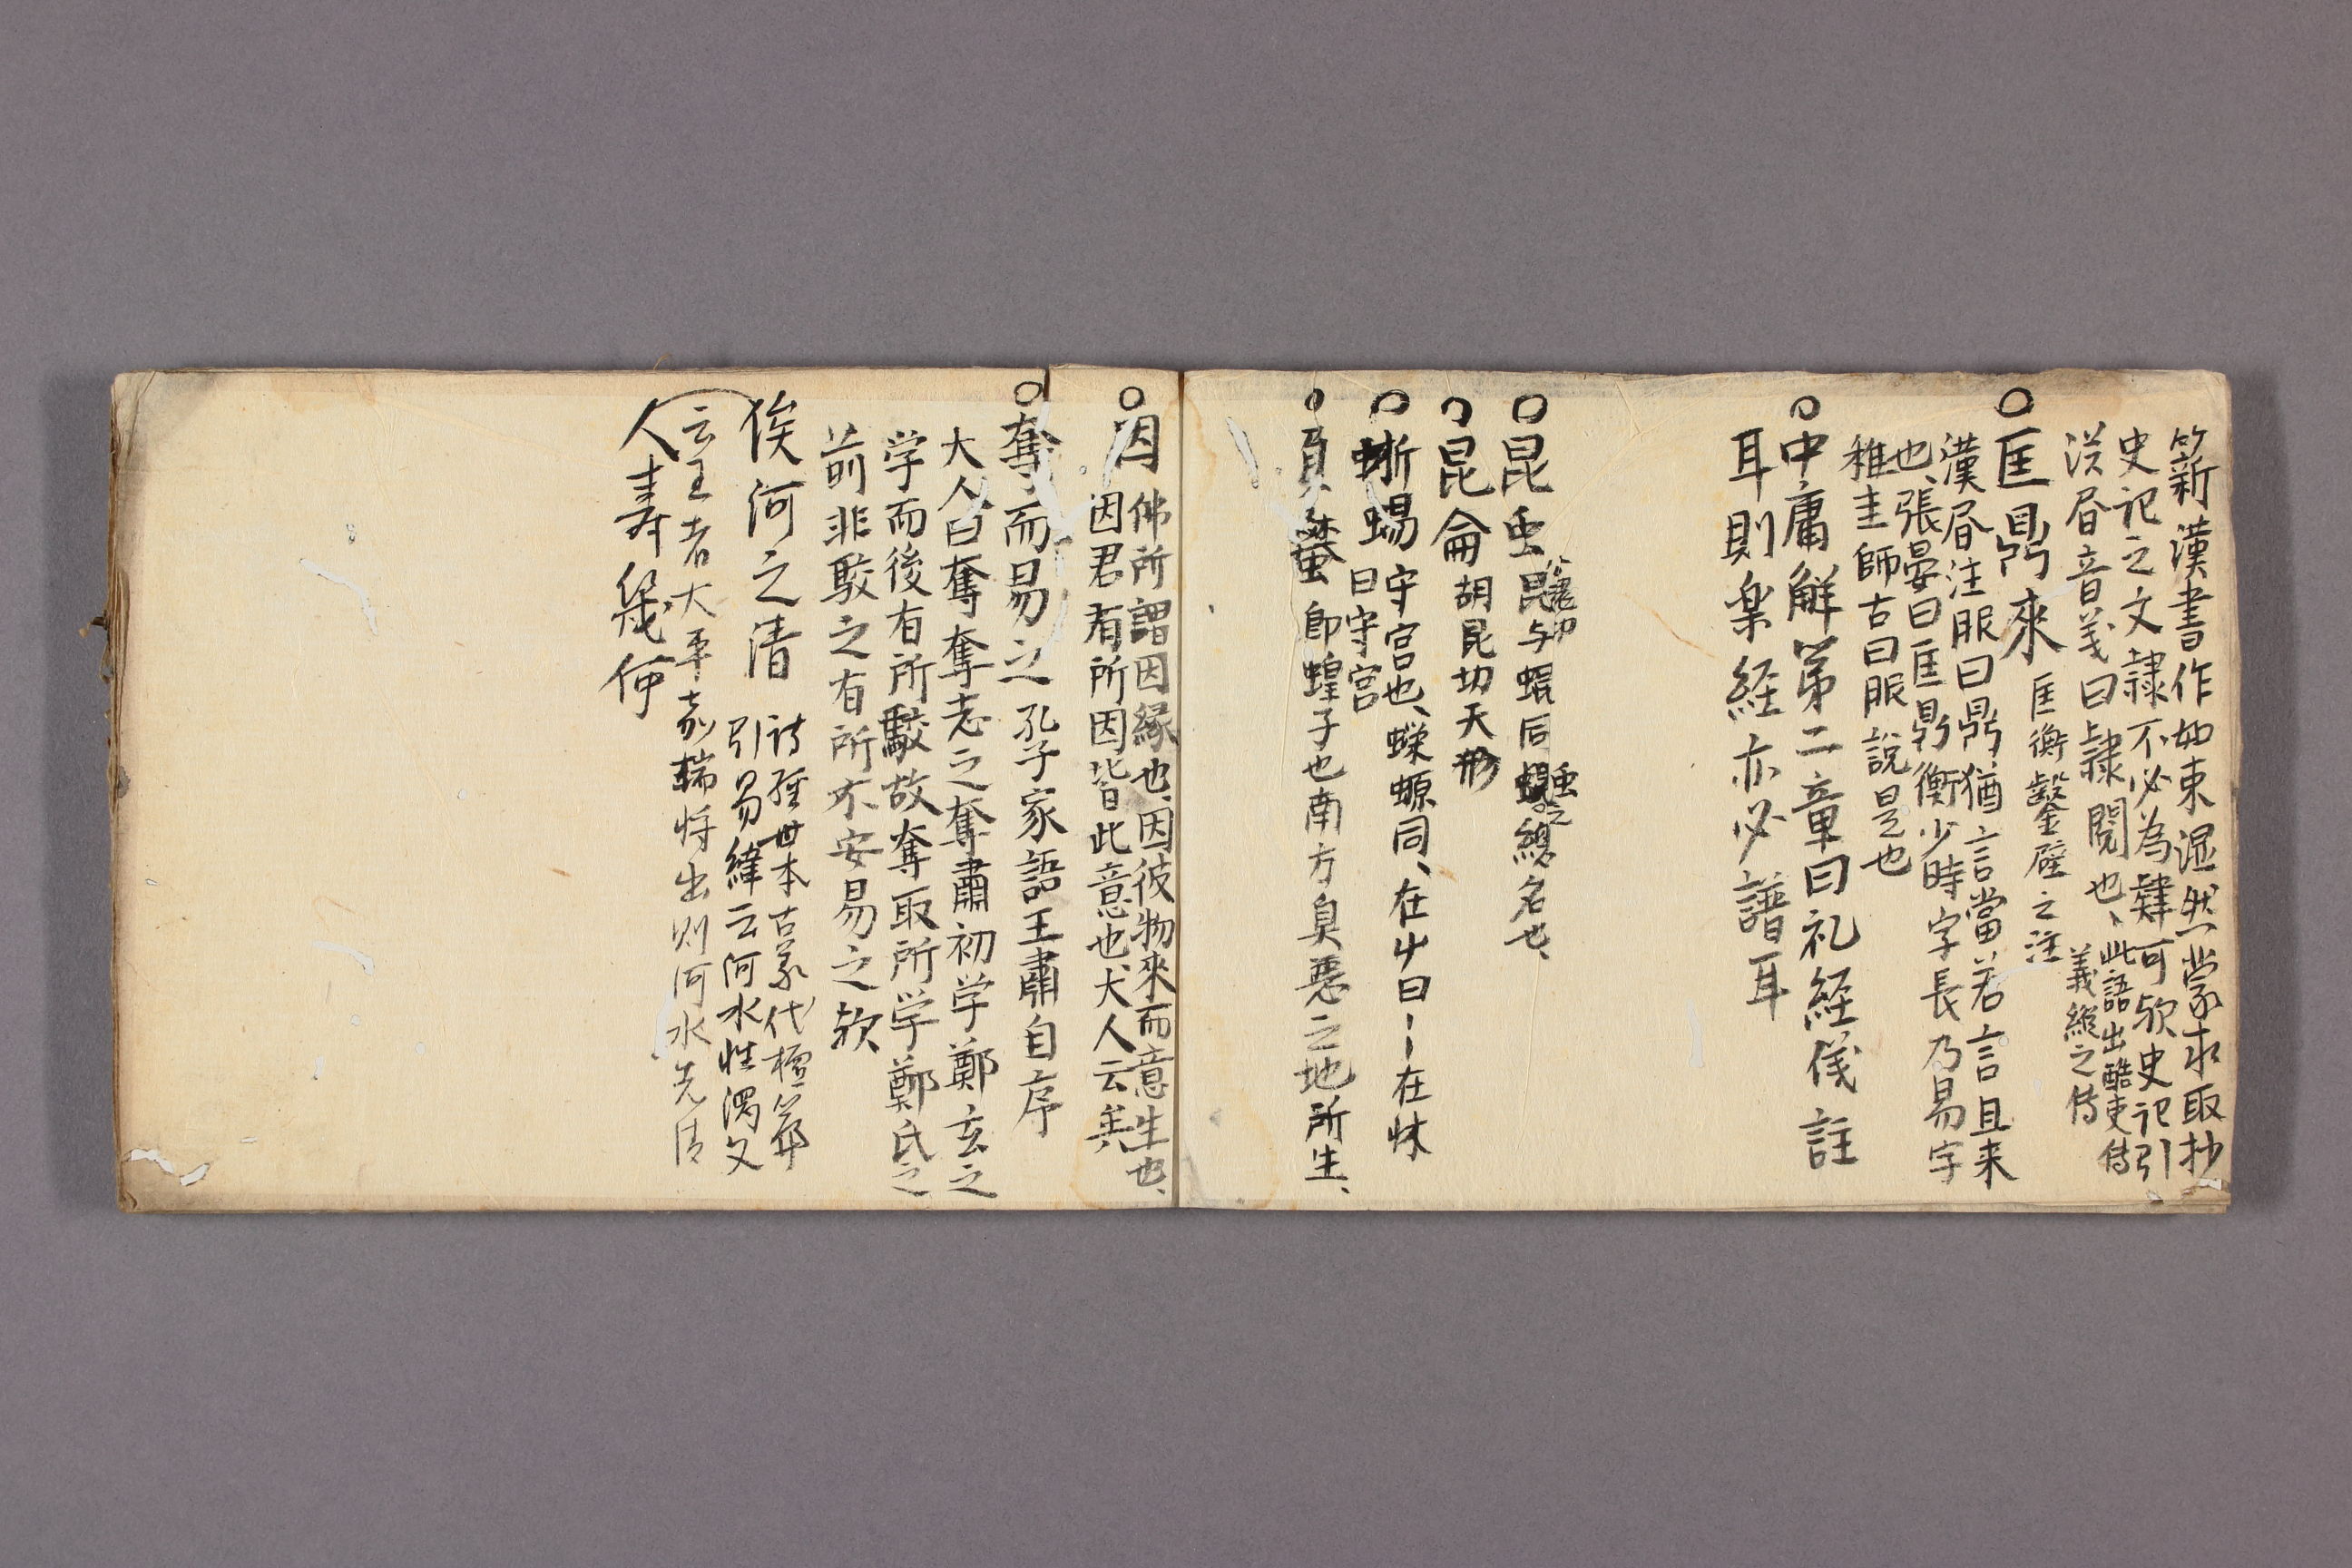 薪漢書作如束湿然蒙求取抄
史記之文隷不必為肄可欤史記引
漢㫺音义曰隷閱也、此語出酷吏傳
義縦之傳
○匡鼎來 匡衡鑿壁之注
漢㫺注服曰鼎猶言當若言且来
也、張晏曰匡鼎衡少時字長乃易字
稚圭師古曰服説是也
○中庸解第二章曰礼経儀註
耳則楽経亦必譜耳
○昆虫 昆与蜫同蟲之總名也、
○昆侖 胡昆切天形
○蜥蜴 守宮也、蠑螈同、在山曰ー在床
曰守宮
○負蠜 即蝗子也南方臭惡之地所生、
○因 佛所謂因縁也、因彼物來而意生也、
因君有所因皆此意也犬人云共
○奪而易之 孔子家語王肅自序
大人曰奪奪志之奪肅初学鄭玄之
学而後有所駁故奪取所学鄭氏之
前非駁之有所不安易之欤
俟河之清 詩経世本古義代檀弓
引易緯云河水性濁文
云王者大平嘉瑞将出則河水先清
人寿幾何